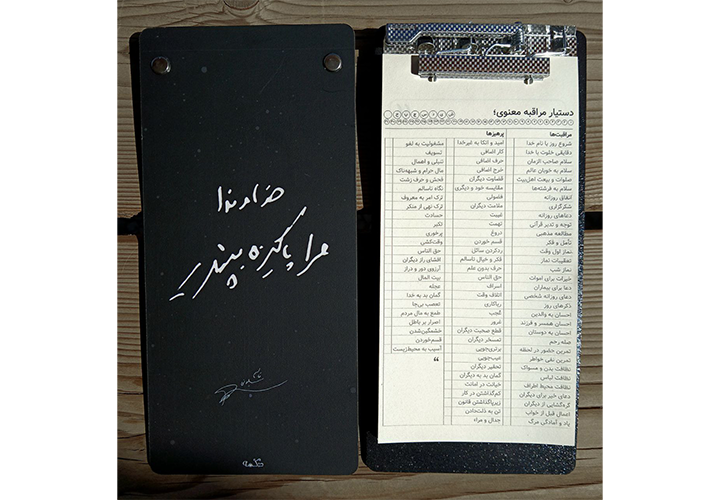 خداوندا
مرا پاکیزه بپذیر
دستیار مراقبه معنوی؛
مراقبت‌ها
شروع روز با نام خدا
دقایقی خلوت با خدا
سلام به صاحب الزمان
سلام به خوبان عالم
صلوات و بیعت اهل‌بیت
سلام به فرشته‌ها
انفاق روزانه
شکرگزاری
دعاهای روزانه
توجه و تدبر قرآنی
مطالعه مذهبی
تأمل و فکر
نماز اول وقت
تعقیبات نماز
نماز شب
خیرات برای اموات
دعا برای بیماران
دعای روزانه شخصی
ذکرهای روز
احسان به والدین
احسان همسر و فرزند
احسان به دوستان
صله رحم
تمرین حضور در لحظه
تمرین نفی خواطر
نظافت بدن و مسواک
نظافت لباس
نظافت محیط اطراف
دعای خیر برای دیگران
گره‌گشایی از دیگران
اعمال قبل از خواب
یاد و آمادگی مرگ
پرهیزها
امید و اتکا به غیرخدا
کار اضافی
حرف اضافی
خرج اضافی
قضاوت دیگران
مقایسه خود و دیگری
فضولی
ملامت دیگران
غیبت
تهمت
دروغ
قسم خوردن
ردکردن سائل
فکر و خیال ناسالم
حرف بدون علم
حق الناس
اسراف
اتلاف وقت
ریاکاری
عُجب
غرور
قطع صحبت دیگران
تمسخر دیگران
برتری‌جویی
عیب‌جویی
تحقیر دیگران
گمان بد به دیگران
خیانت در امانت
کم‌گذاشتن در کار
زیرپاگذاشتن قانون
تن به ذلت‌دادن
جدال و مراء
مشغولیت به لغو
تسویف
تنبلی و اهمال
مال حرام و شبهه‌ناک
فحش و حرف زشت
نگاه ناسالم
ترک امر به معروف
ترک نهی از منکر
حسادت
تکبر
پرخوری
وقت‌کشی
حق الناس
افشای راز دیگران
آرزوی دور و دراز
بیت المال
عجله
گمان بد به خدا
تعصب بی‌جا
طمع به مال مردم
اصرار بر باطل
خشمگین‌شدن
قسم‌خوردن
آسیب به محیط‌زیست